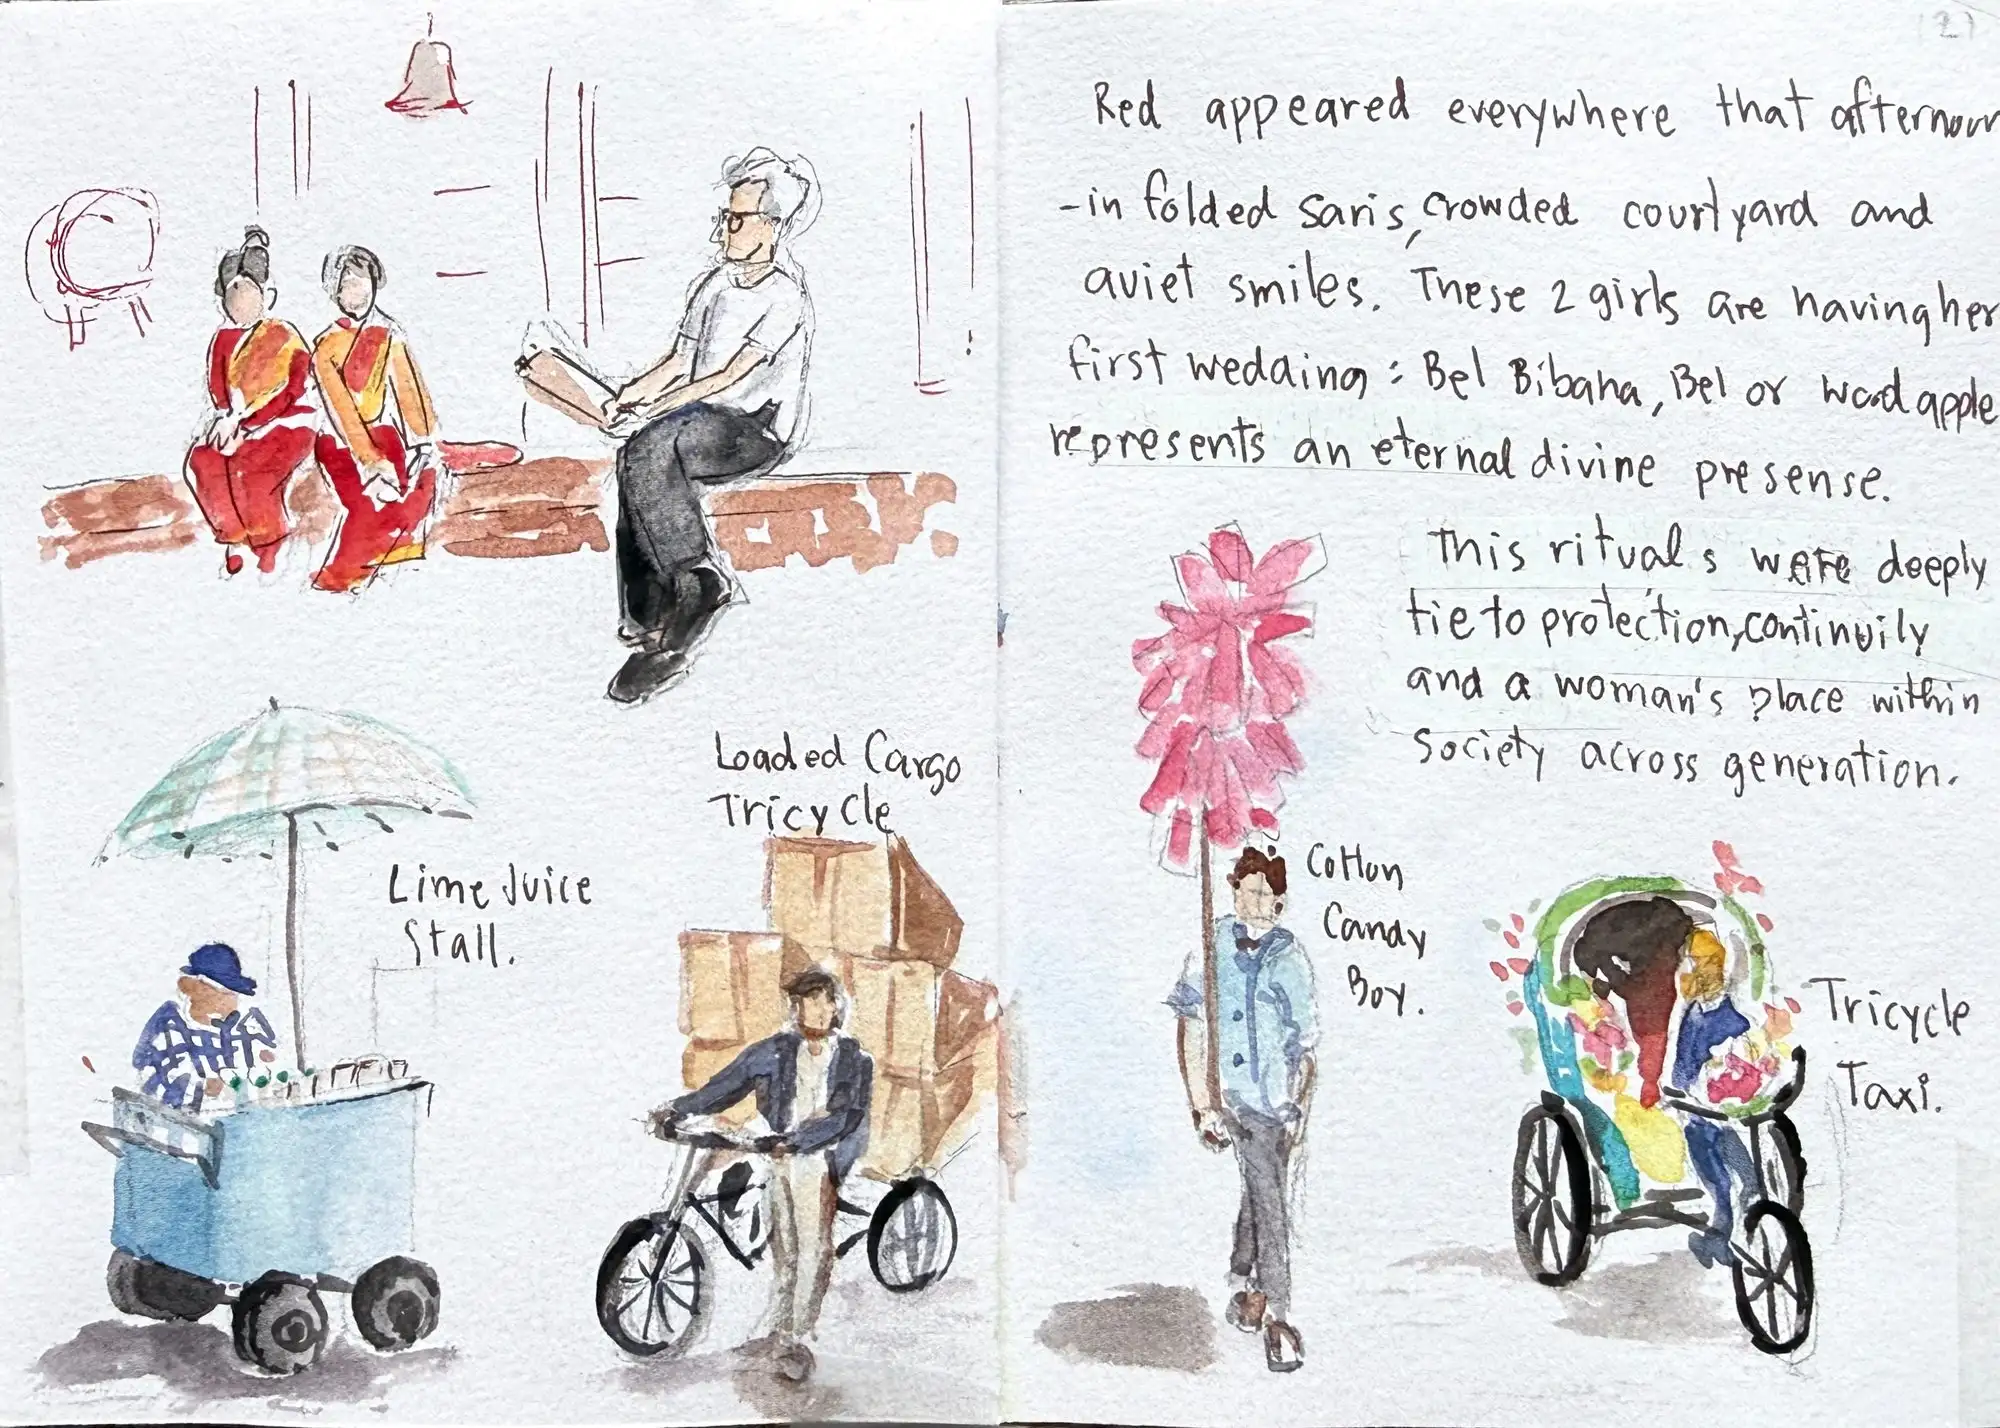 Loaded Cargo
Tricycle
Lime Juice
Stall.
(2)
Red appeared everywhere that afternoon
-in folded saris, crowded courtyard and
quiet smiles. These 2 girls are having her
first wedding : Bel Bibaha, Bel or wood apple
represents an eternal divine presense.
This rituals were deeply
tie to protection, continuily
and a woman's place within
society across generation.
Cotton
Candy
Boy.
Tricycle
Taxi.